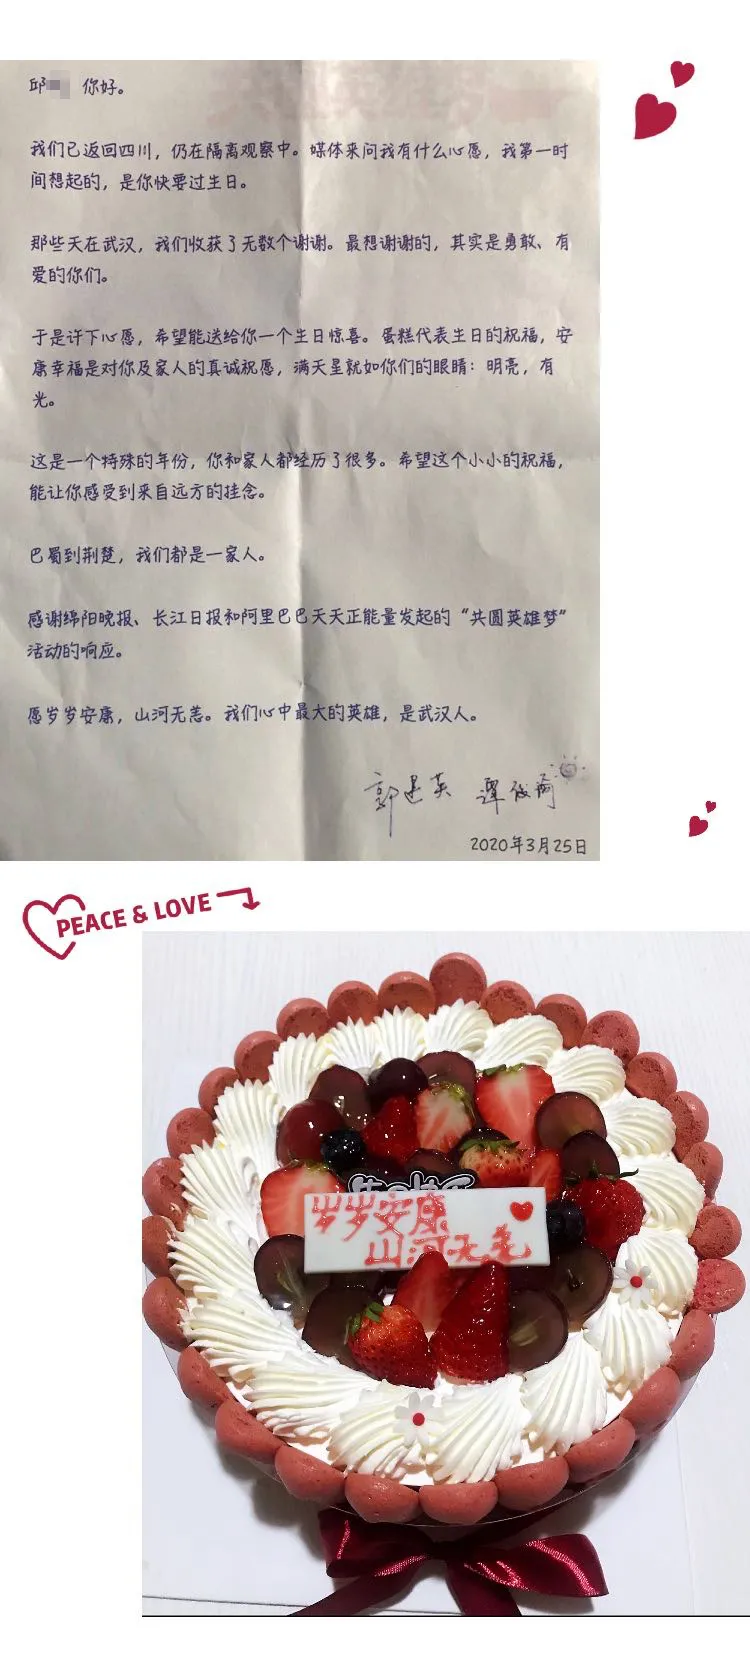 邱 你好。
我们已返回四川，仍在隔离观察中。媒体来问我有什么心愿，我第一时
间想起的，是你快要过生日。
那些天在武汉，我们收获了无数个谢谢。最想谢谢的，其实是勇敢、有
爱的你们。
于是许下心愿，希望能送给你一个生日惊喜。蛋糕代表生日的祝福，安
康幸福是对你及家人的真诚祝愿，满天星就如你们的眼睛：明亮，有
光。
这是一个特殊的年份，你和家人都经历了很多。希望这个小小的祝福，
能让你感受到来自远方的挂念。
巴蜀到荆楚，我们都是一家人。
感谢绵阳晚报、长江日报和阿里巴巴天天正能量发起的“共圆英雄梦”
活动的响应。
愿岁岁安康，山河无恙。我们心中最大的英雄，是武汉人。
郭建英
2020年3月25日
PEACE & LOVE
岁岁安康
山河无恙